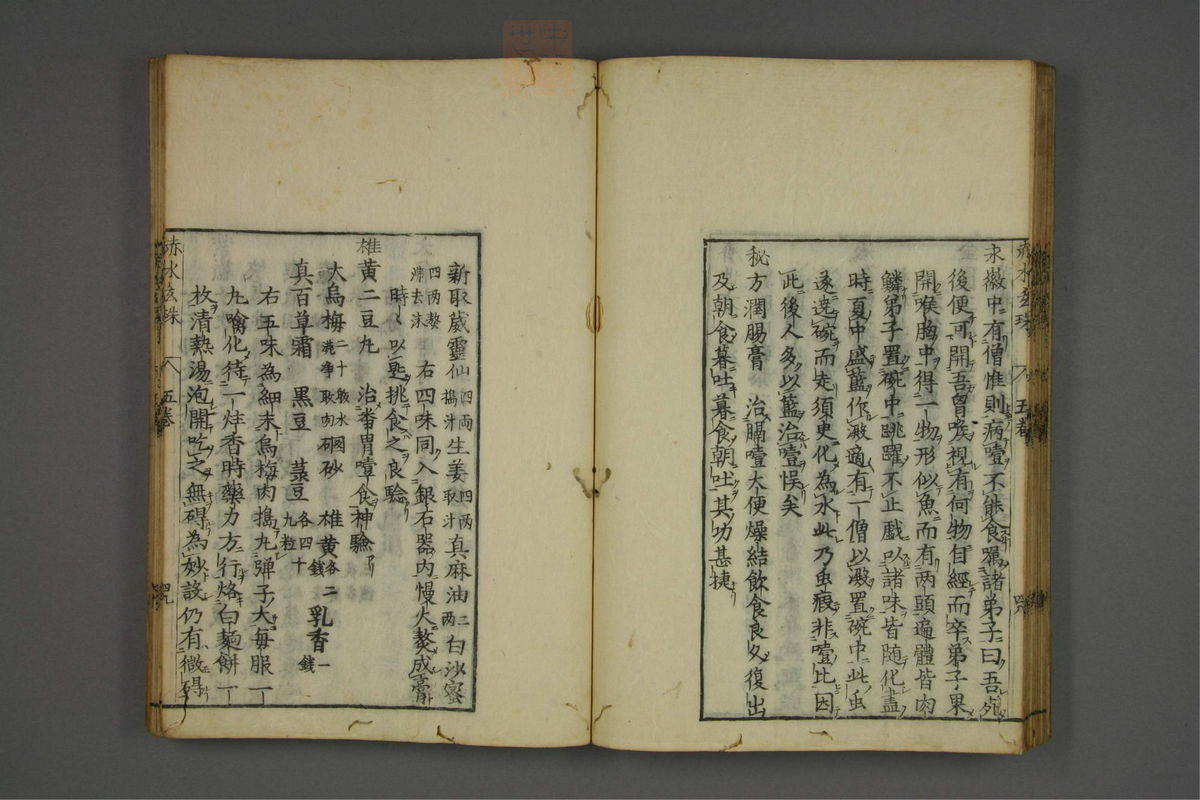 永徽中有僧惟則病噎不能食屬諸弟子曰吾死
後便可開吾曾喉視有何物自經而卒弟子果
開喉胸中得一物形似魚而有两頭遍體皆肉
鱗弟子置碗中跳躍不止戱以諸味皆随化盡
時夏中盛藍作澱適有一僧以澱置碗中此虫
遂遶碗而走須史化為水此乃虫瘕非噎比因
此後人多以藍治噎悮矣
秘方潤腸膏　治膈噎大便燥結飲食良久復出
及朝食暮吐暮食朝吐其功甚捷
新取葳靈仙四兩搗汁生姜四兩取汁真麻油二兩白沙蜜
四两熬沸去沫　右四味同入銀石器内慢火熬成膏
時時以匙挑食之良驗
雄黄二豆丸　治番胃噎食神驗
大烏梅二十枚水洗净取肉硇砂　雄黄各二錢乳香一錢
真百草霜　黒豆　菉豆各四十九粒
右五味為細末烏梅肉搗丸弾子大毎服一
丸噙化待一炷香時藥力方行烙白麵餅一
枚清熱湯泡開吃之無碍為妙設仍有微碍
赤水玄珠　五卷